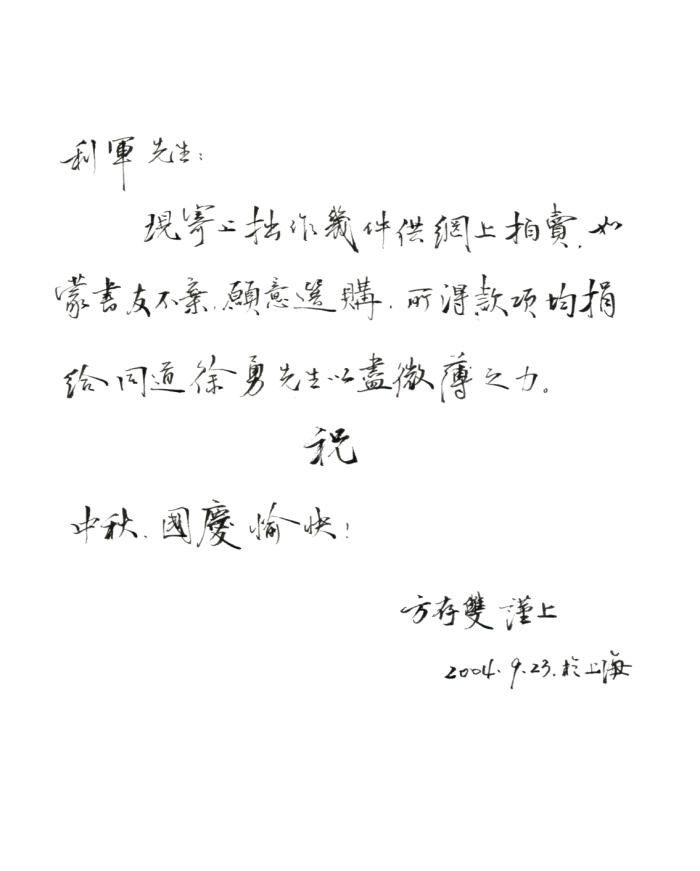 利軍先生：
現寄上拙作幾件供網上拍賣，如
蒙書友不棄，願意選購，所得款项均捐
给同道徐勇先生以盡微薄之力。
祝
中秋、國慶愉快！
方存雙謹上
2004.9.23.於上海